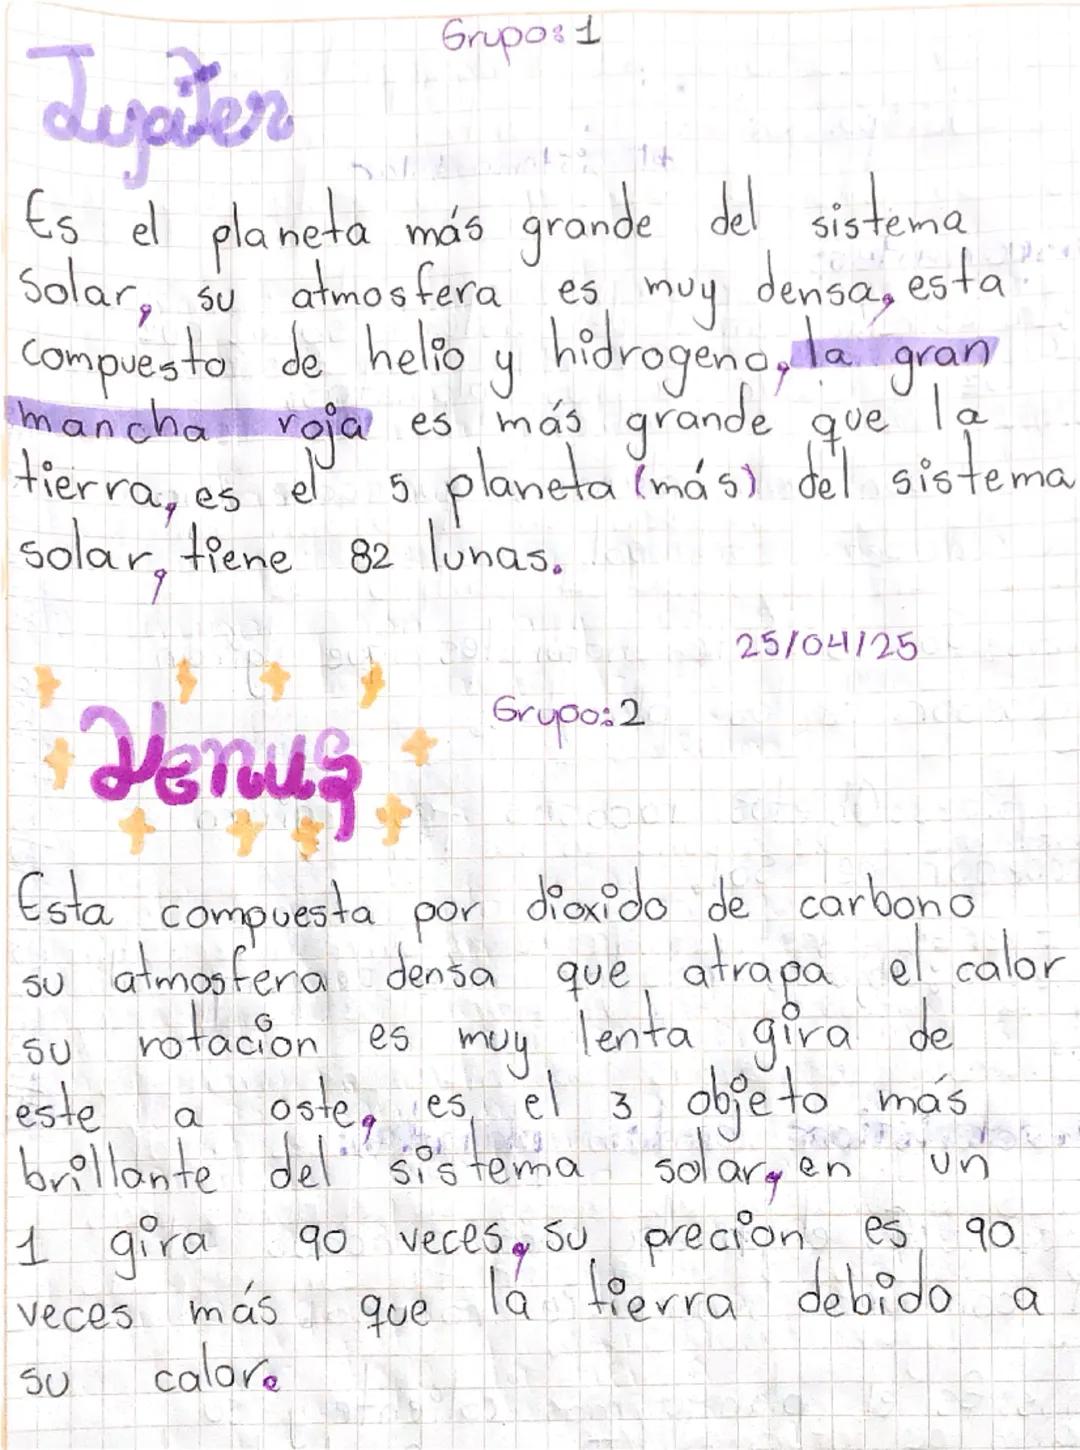 Grupo: 1
Jupiter
Es el planeta más grande del sistema
solar, su atmosfera es muy densa, esta
compuesto de helio y hidrogeno, la gran
mancha roja es más grande que la
tierra, es el 5 planeta (más) del sistema
solar, tiene 82 lunas.
25/04/25
Grupo: 2
Venus
Esta compuesta por dioxido de carbono
su atmosfera densa que atrapa el calor
su rotacion es muy lenta gira de
este a oste, es el 3 objeto más
brillante del sistema solar, en un
1 gira 90 veces, su precion es 90
veces más que la tierra debido a
su calor.